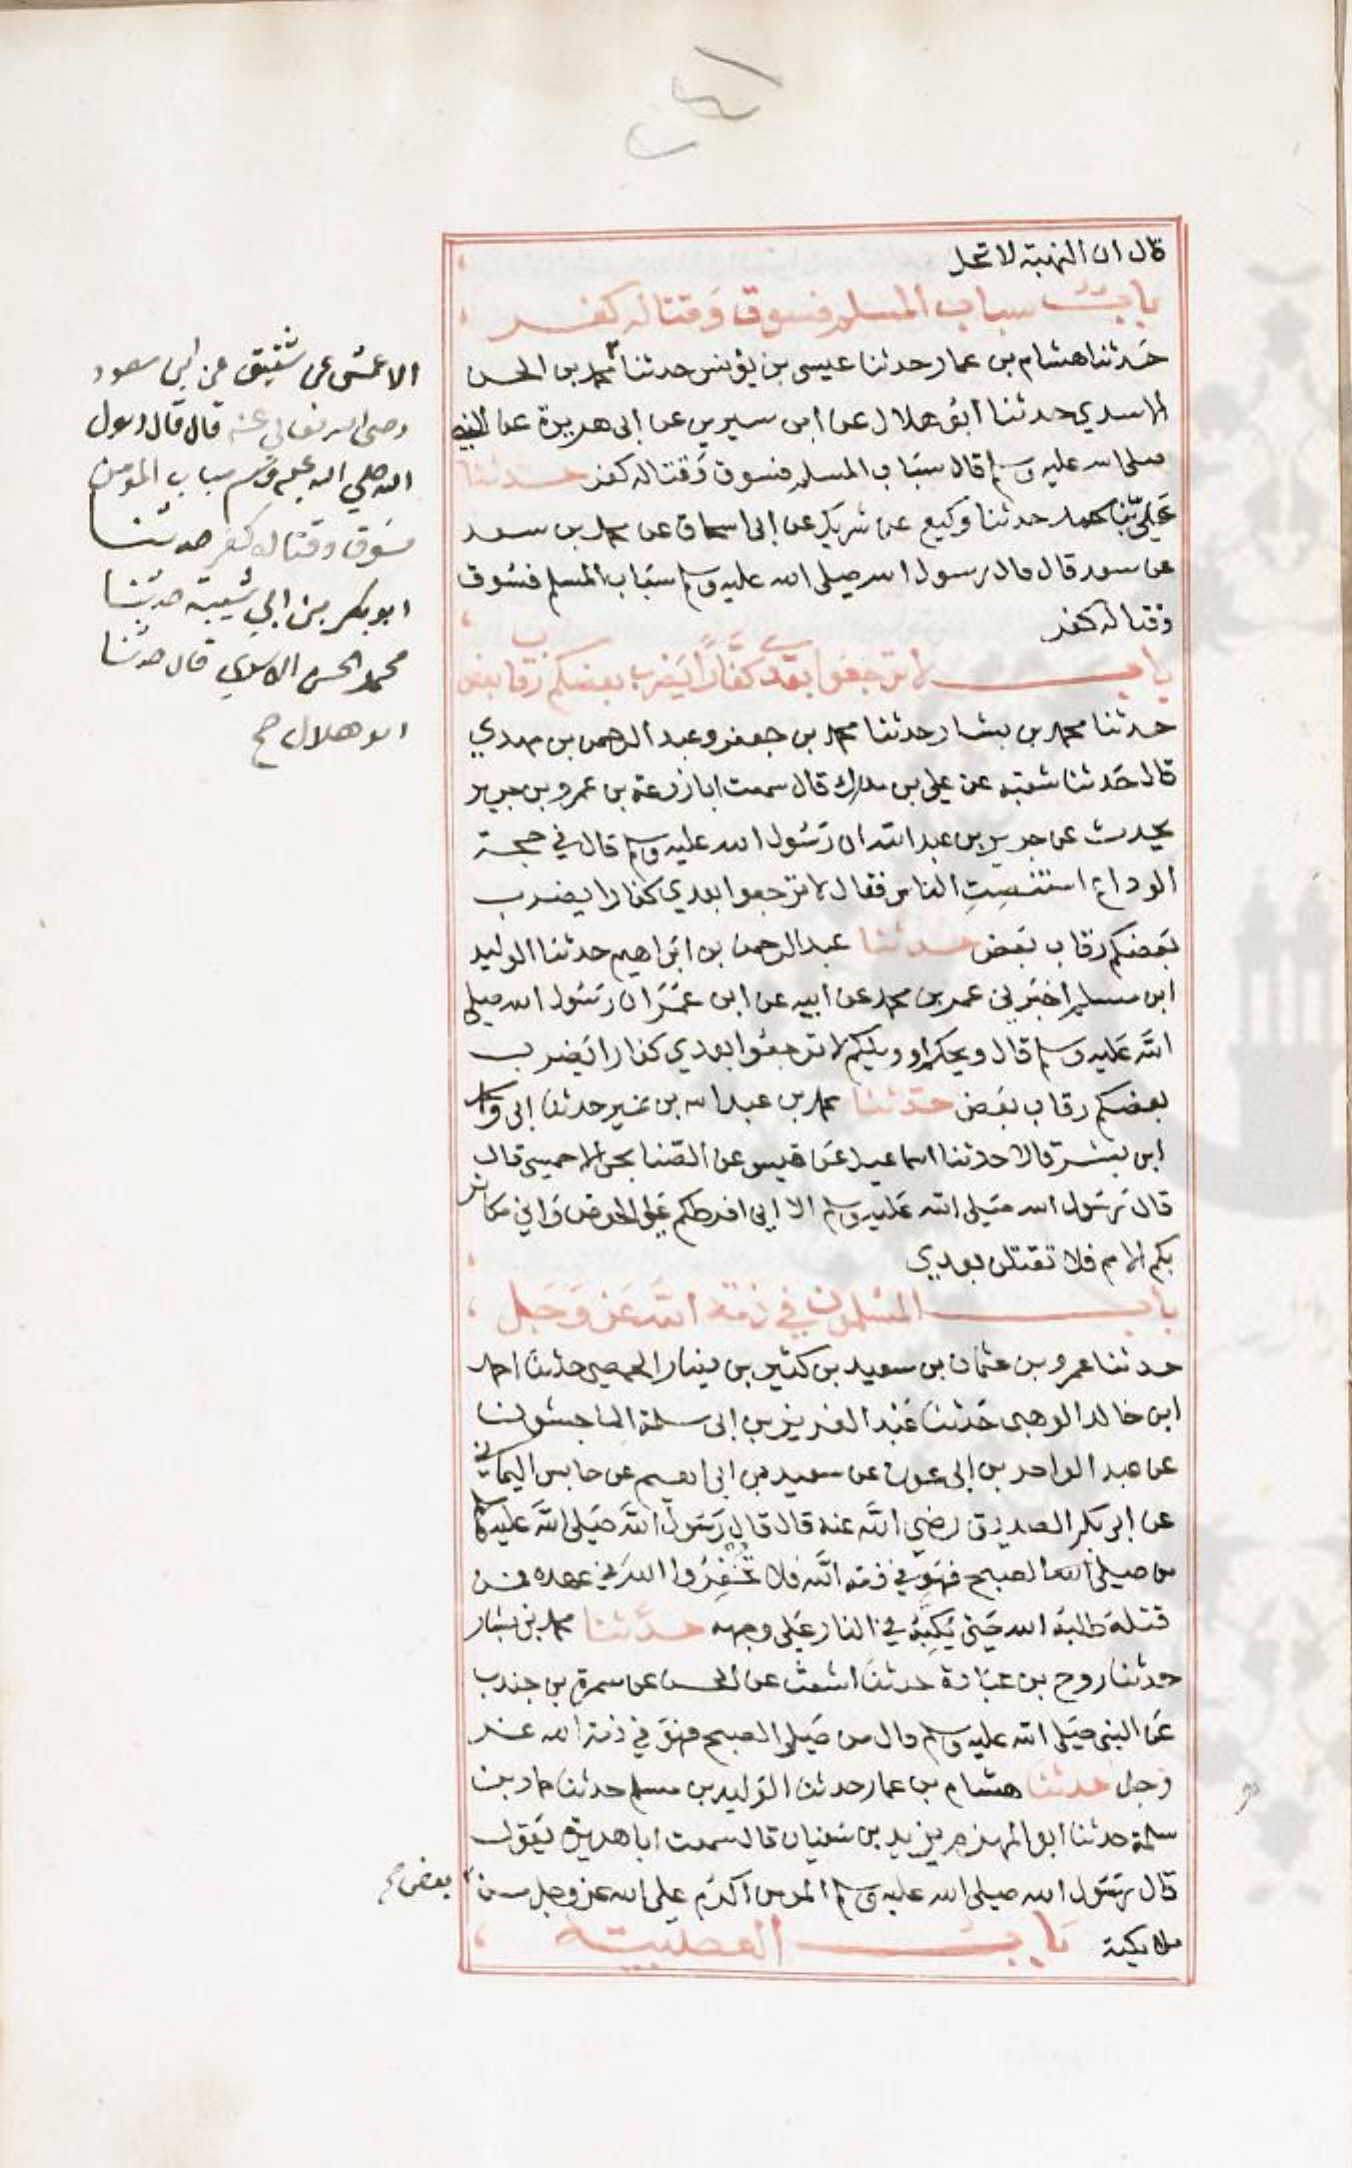 قال ان النهبة لا تحل
باب سباب المسلم فسوق وقتاله كفر
حدثنا هشام بن عمار حدثنا عيسى بن يونس حدثنا محمد بن الحسن
الاسدي حدثنا ابو هلال عن ابن سيرين عن ابى هريرة عن النبي
صلى الله عليه وسلم قال سباب المسلم فسوق وقتاله كفر حدثنا
علي بن محمد حدثنا وكيع عن شريك عن ابى اسحاق عن محمد بن سعد
عن سعد قال قال رسول الله صلى الله عليه وسلم سباب المسلم فسوق
وقتاله كفر
باب لا ترجعوا بعدي كفارا يضرب بعضكم رقاب بعض
حدثنا محمد بن بشار حدثنا محمد بن جعفر وعبد الرحمن بن مهدي
قال حدثنا شعبة عن علي بن مدرك قال سمعت ابا زرعة بن عمرو بن جرير
يحدث عن جرير بن عبد الله ان رسول الله عليه وسلم قال في حجة
الوداع استنصت الناس فقال لا ترجعوا بعدي كفارا يضرب
بعضكم رقاب بعض حدثنا عبد الرحمن بن ابراهيم حدثنا الوليد
ابن مسلم اخبرني عمر بن محمد عن ابيه عن ابن عمر ان رسول الله صلى
الله عليه وسلم قال ويحكم او ويلكم لا ترجعوا بعدي كفارا يضرب
بعضكم رقاب بعض حدثنا محمد بن عبد الله بن نمير حدثنا ابى ومحمد
ابن بشر قالا حدثنا اسماعيل عن قيس عن الصنابحى الاحمسي قال
قال رسول الله صلى الله عليه وسلم الا انى افرطكم على الحوض واني مكاثر
بكم الامم فلا تقتلن بعدي
باب المسلمون في ذمة الله عز وجل
حدثنا عمرو بن عثمان بن سعيد بن كثير بن دينار الحمصي حدثنا احمد
ابن خالد الوهبى حدثنا عبد العزيز بن ابى سلمة الماجشون
عن عبد الواحد بن ابى عون عن سعيد بن ابراهيم عن حابس اليماني
عن ابى بكر الصديق رضي الله عنه قال قال رسول الله صلى الله عليه وسلم
من صلى الصبح فهو في ذمة الله فلا تخفروا الله في عهده فمن
قتله طلبه الله حتى يكبه في النار على وجهه حدثنا محمد بن بشار
حدثنا روح بن عبادة حدثنا اشعث عن الحسن عن سمرة بن جندب
عن النبي صلى الله عليه وسلم قال من صلى الصبح فهو في ذمة الله عز
وجل حدثنا هشام بن عمار حدثنا الوليد بن مسلم حدثنا حماد بن
سلمة حدثنا ابو المهزم يزيد بن سفيان قال سمعت ابا هريرة يقول
قال رسول الله صلى الله عليه وسلم المومن اكرم على الله عز وجل من
ملايكته باب العصبية
الاعمش عن شقيق عن ابي مسعود
رضى الله تعالى عنه قال قال رسول
الله صلى الله عليه وسلم سباب المومن
فسوق وقتاله كفر حدثنا
ابو بكر بن ابي شيبة حدثنا
محمد الحسن الاسدي قال حدثنا
ابو هلال صح
بعض صح